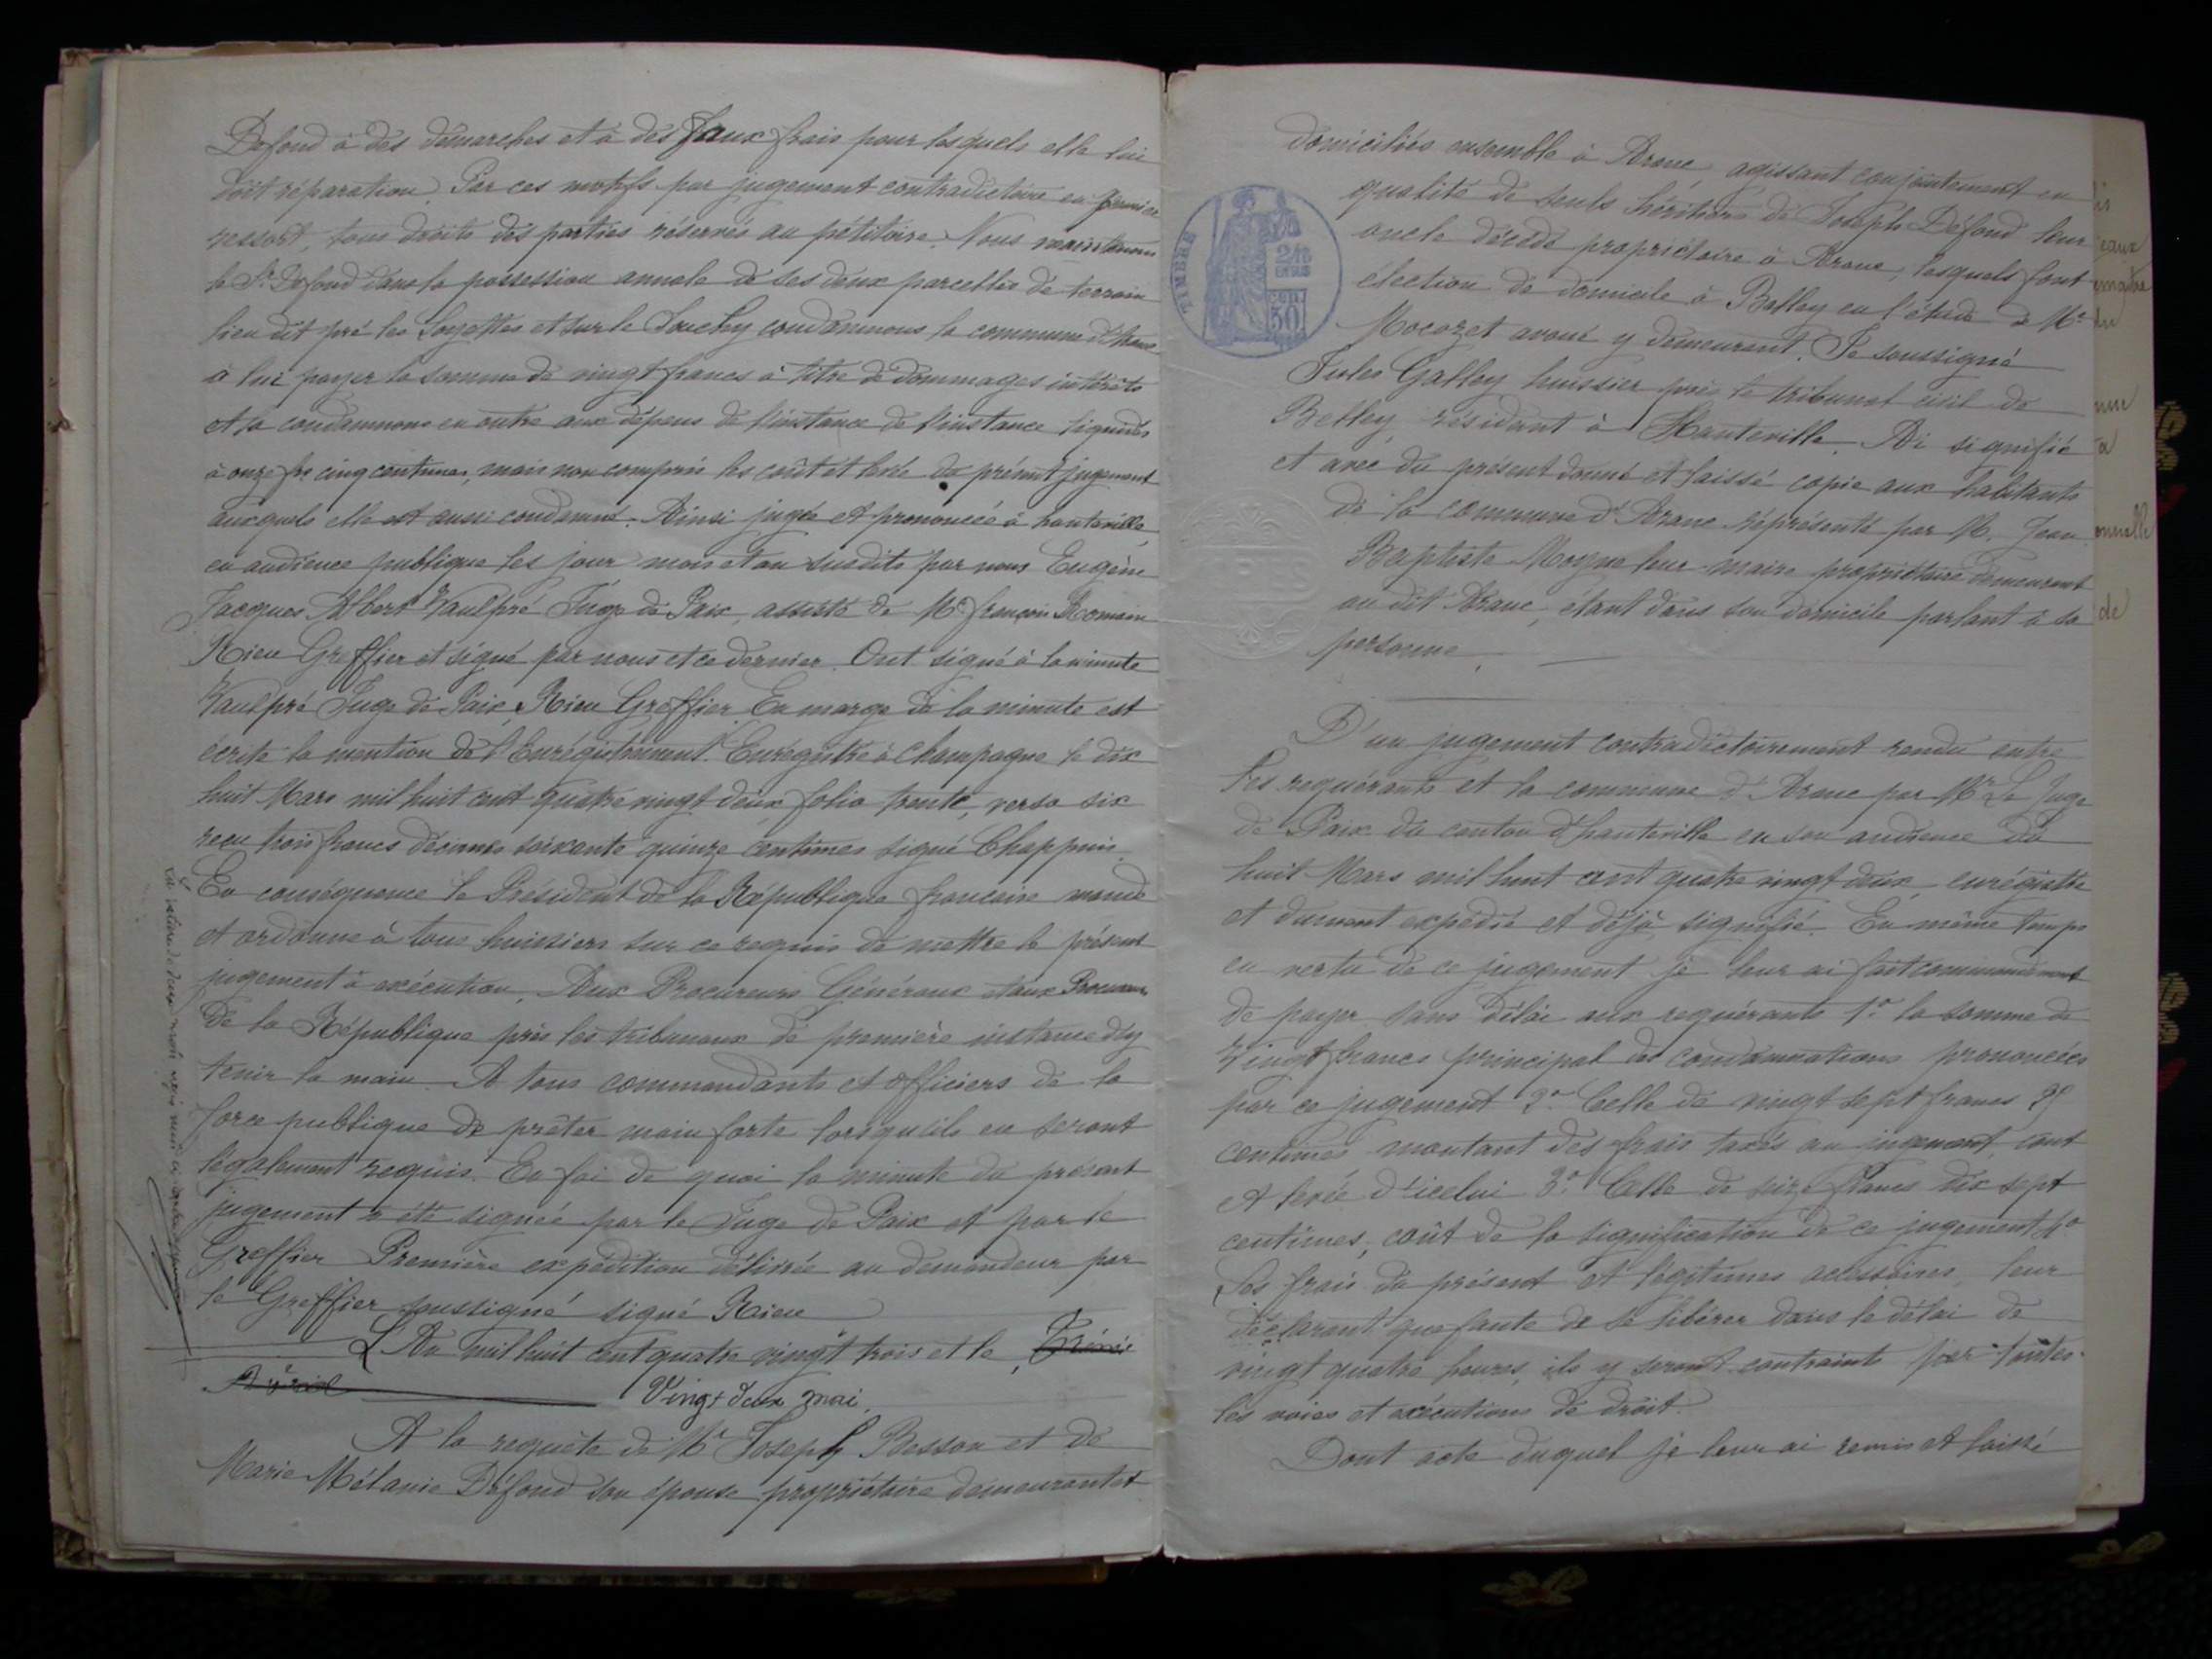 Défond à des démarches et à des faux frais pour lesquels elle lui
doit réparation. Par ces motifs par jugement contradictoire en premier
ressort, tous droits des parties réservés au pétitoire. Nous maintenons
le Sr. Défond dans la possession annale de ses deux parcelles de terrain
lieu dit pré les Loyettes et sur le Souchy condamnons la commune d'Aranc
à lui payer la somme de vingt francs à titre de dommages intérêts
et la condamnons en outre aux dépens de l'instance de l'instance liquidés
à onze frs cinq centimes, mais non compris les coût et levée du présent jugement
auxquels elle est aussi condamné. Ainsi jugée et prononcée à hauteville
en audience publique les jour mois et an susdits par nous Eugène
Jacques Albert Vaulpré Juge de Paix, assisté de Me. françois Romain
Rieu Greffier et signé par nous et ce dernier. Ont signé à la minute
Vaulpré Juge de Paix, Rieu Greffier. En marge de la minute est
écrite la mention de l'Enrégistrement. Enrégistré à Champagne le dix
huit Mars mil huit cent quatre vingt deux, folio trente, verso six
reçu trois francs décimes soixante quinze centimes signé Chappuis.
En conséquence le Président de la République française mande
et ordonne à tous huissiers sur ce requis de mettre le présent
jugement à exécution, Aux Procureurs Généraux et aux Procureurs
De la République près les tribunaux de première instance d'y
tenir la main. A tous commandants et officiers de la
force publique de prêter main forte lorsqu'ils en seront
légalement requis. En foi de quoi la minute du présent
jugement a été signée par le Juge de Paix et par le
Greffier Première expédition délivrée au demandeur par
le Greffier soussigné signé Rieu
L'An mil huit cent quatre vingt trois et le
Vingt deux mai.
A la requête de Mr Joseph Besson et de
Marie Mélanie Défond son épouse propriétaire demeurant et
domiciliés ensemble à Aranc, agissant conjointement en
qualité de seuls héritiers de Joseph Défond leur
oncle décédé propriétaire à Aranc, lesquels font
élection de domicile à Belley en l'étude de Me.
Mocozet avoué y demeurant. Je soussigné
Jules Galley huissier près le tribunal civil de
Belley, résidant à Hauteville. Ai signifié
et avec du présent donné et laissé copie aux habitants
de la commune d'Aranc réprésenté par M. Jean
Baptiste Moyne leur maire propriétaire demeurant
au dit Aranc, étant dans son domicile parlant à sa
personne.
TIMBRE
2/10
EN SUS
50
D'un jugement contradictoirement rendu entre
les requérants et la commune d'Aranc par Mr. Le Juge
de Paix du canton d'hauteville en son audience du
huit Mars mil huit cent quatre vingt deux, enrégistré
et dument expédié et déjà signifié. En même temps
en vertu de ce jugement je leur ai fait commandement
de payer sans délai aux requérants 1º. la somme de
Vingt francs principal des condamnations prononcées
par ce jugement 2º. Celle de vingt sept francs 25
centimes montant des frais taxés au jugement, cout
et levée d'icelui 3º. Celle de seize francs dix sept
centimes, coût de la signification de ce jugement 4º
Les frais du présent et légitimes accessoires, leur
déclarant que faute de se libérer dans le délai de
vingt quatre heures, ils y seront contraints par toutes
les voies et exécutions de droit.
Dont acte duquel je leur ai remis et laissé